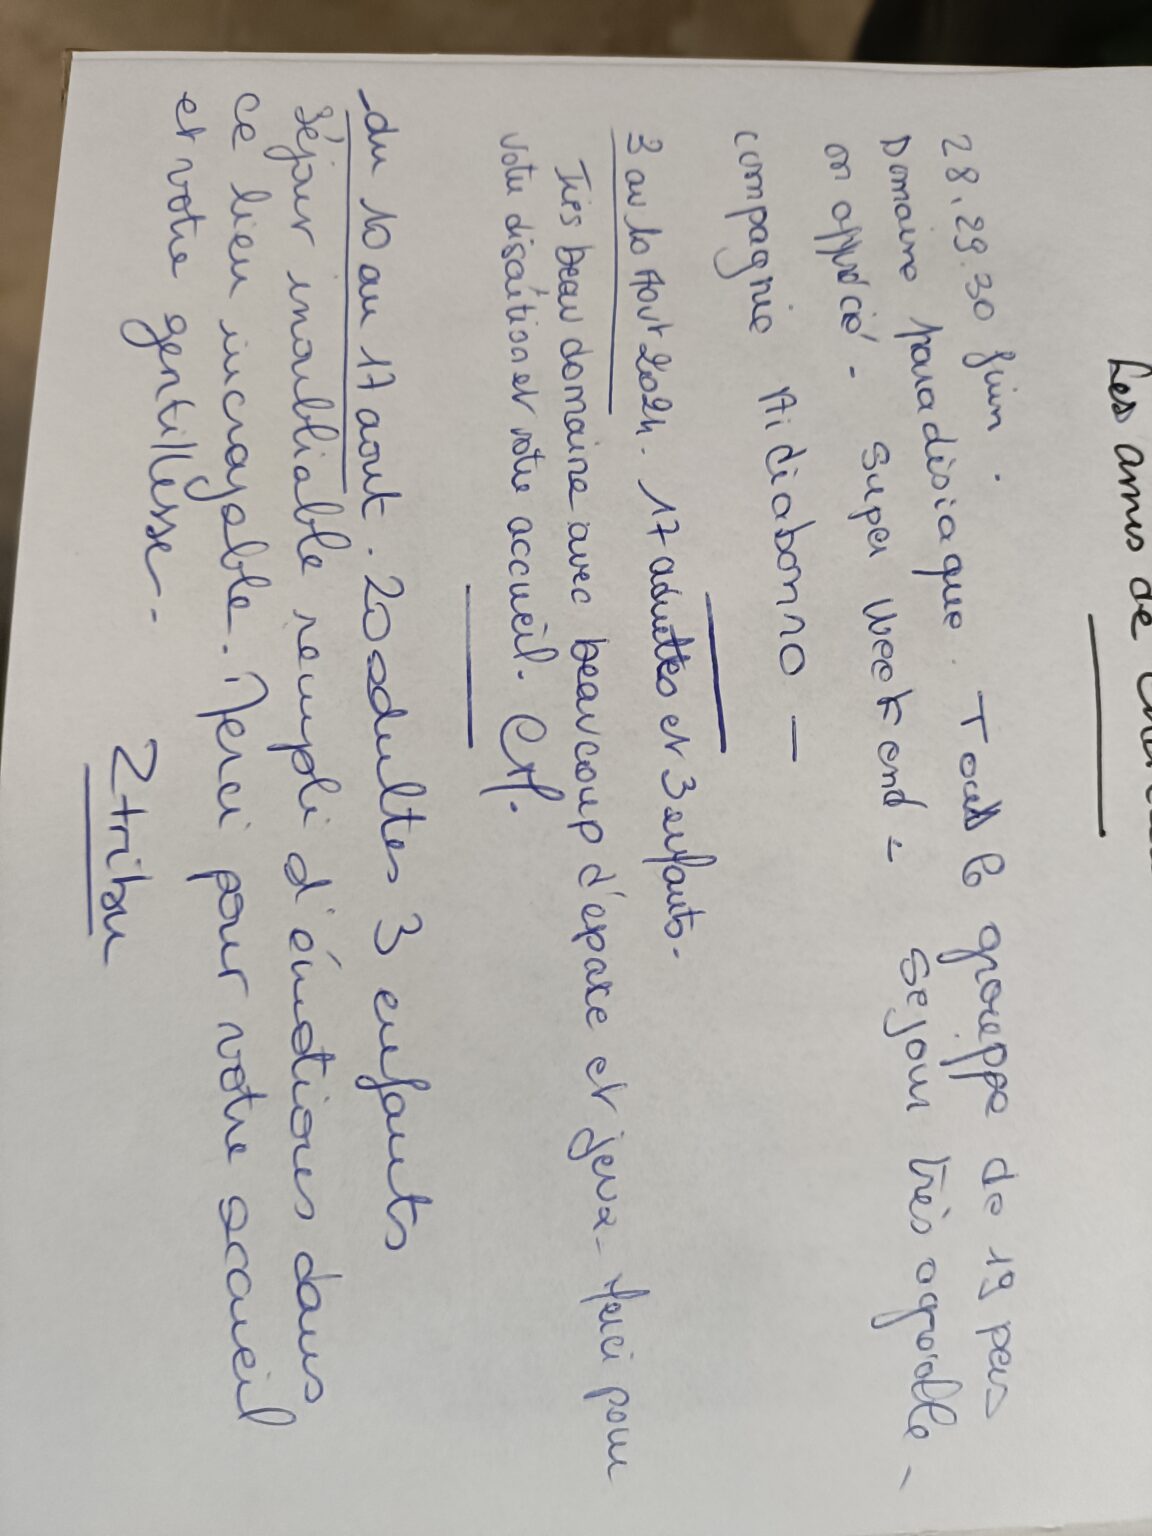 Les amis de
28.29.30 Juin.
Domaine paradisiaque. Tout le groupe de 19 pers
on apprécié - Super Week end - Séjour très agréable -
compagnie Aidiabonno -
3 au 10 Aout 2024. 17 adultes et 3 enfants.
Très beau domaine avec beaucoup d'espace et jeux - Merci pour
votre discrétion et votre accueil.
du 10 au 17 aout. 20 adultes 3 enfants
Séjour inoubliable rempli d'émotions dans
ce lieu incroyable. Merci pour votre accueil
et votre gentillesse.
2tribu